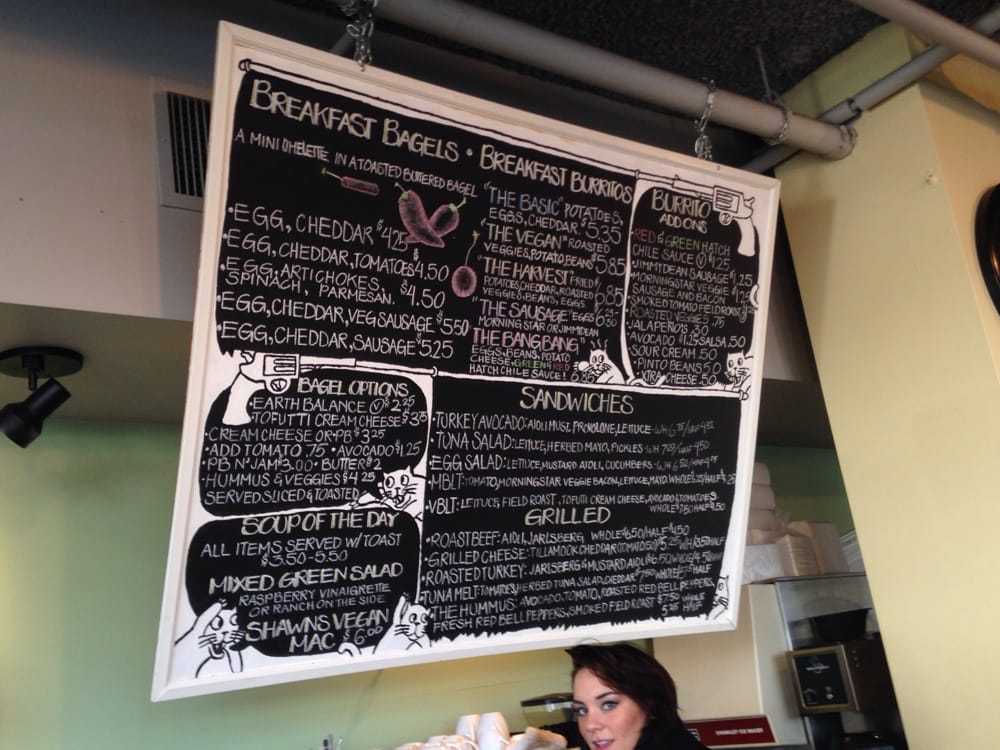 BREAKFAST BAGELS • BREAKFAST BURRITOS
A MINI OMELETTE IN A TOASTED BUTTERED BAGEL
•EGG, CHEDDAR $4.25
•EGG, CHEDDAR, TOMATOES $4.50
•EGG, ARTICHOKES,
SPINACH, PARMESAN. $4.50
•EGG, CHEDDAR, VEG SAUSAGE $5.50
•EGG, CHEDDAR, SAUSAGE $5.25
"THE BASIC" POTATOES,
EGGS, CHEDDAR $5.35
"THE VEGAN" ROASTED
VEGGIES, POTATO, BEANS $5.85
"THE HARVEST" FRIED
POTATOES, CHEDDAR, ROASTED
VEGGIES, BEANS, EGGS 6.85
"THE SAUSAGE" EGGS
MORNINGSTAR OR JIMMY DEAN
"THE BANG BANG"
EGGS, BEANS, POTATO
CHEESE, GREEN & RED
HATCH CHILE SAUCE! 6.85
BURRITO
ADD ONS
RED & GREEN HATCH
CHILE SAUCE Ⓥ $1.25
JIMMY DEAN SAUSAGE $1.25
MORNINGSTAR VEGGIE
SAUSAGE AND BACON
SMOKED TOMATO FIELD ROAST
ROASTED VEGGIE .75
JALAPEÑO'S .30
AVOCADO $1.25 SALSA .50
SOUR CREAM .50
PINTO BEANS .50
XTRA CHEESE .50
BAGEL OPTIONS
EARTH BALANCE Ⓥ $2.25
TOFUTTI CREAM CHEESE
•CREAM CHEESE OR PB $3.25
•ADD TOMATO .75 • AVOCADO $1.25
•PB N' JAM $3.00 • BUTTER $2
HUMMUS & VEGGIES $4.25
SERVED SLICED & TOASTED
SOUP OF THE DAY
ALL ITEMS SERVED W/ TOAST
$3.50-5.50
MIXED GREEN SALAD
RASPBERRY VINAIGRETTE
OR RANCH ON THE SIDE
SHAWNS VEGAN
MAC $6.00
SANDWICHES
•TURKEY AVOCADO: AIOLI MUST. PROVOLONE, LETTUCE
•TUNA SALAD: LETTUCE, HERBED MAYO, PICKLES
•EGG SALAD: LETTUCE, MUSTARD AIOLI, CUCUMBERS
•MBLT: TOMATO, MORNINGSTAR VEGGIE BACON, LETTUCE, MAYO. WHOLE
•VBLT: LETTUCE, FIELD ROAST, TOFUTTI CREAM CHEESE, AVOCADO & TOMATOES
WHOLE
GRILLED
•ROAST BEEF: AIOLI, JARLSBERG WHOLE $6.50/HALF $4.50
•GRILLED CHEESE: TILLAMOOK CHEDDAR
•ROASTED TURKEY: JARLSBERG & MUSTARD AIOLI
TUNA MELT: TOMATOES, HERBED TUNA SALAD, CHEDDAR
•THE HUMMUS: AVOCADO, TOMATO, ROASTED RED BELL PEPPERS,
FRESH RED BELL PEPPERS, SMOKED FIELD ROAST $7.50 WHOLE
5.25 HALF